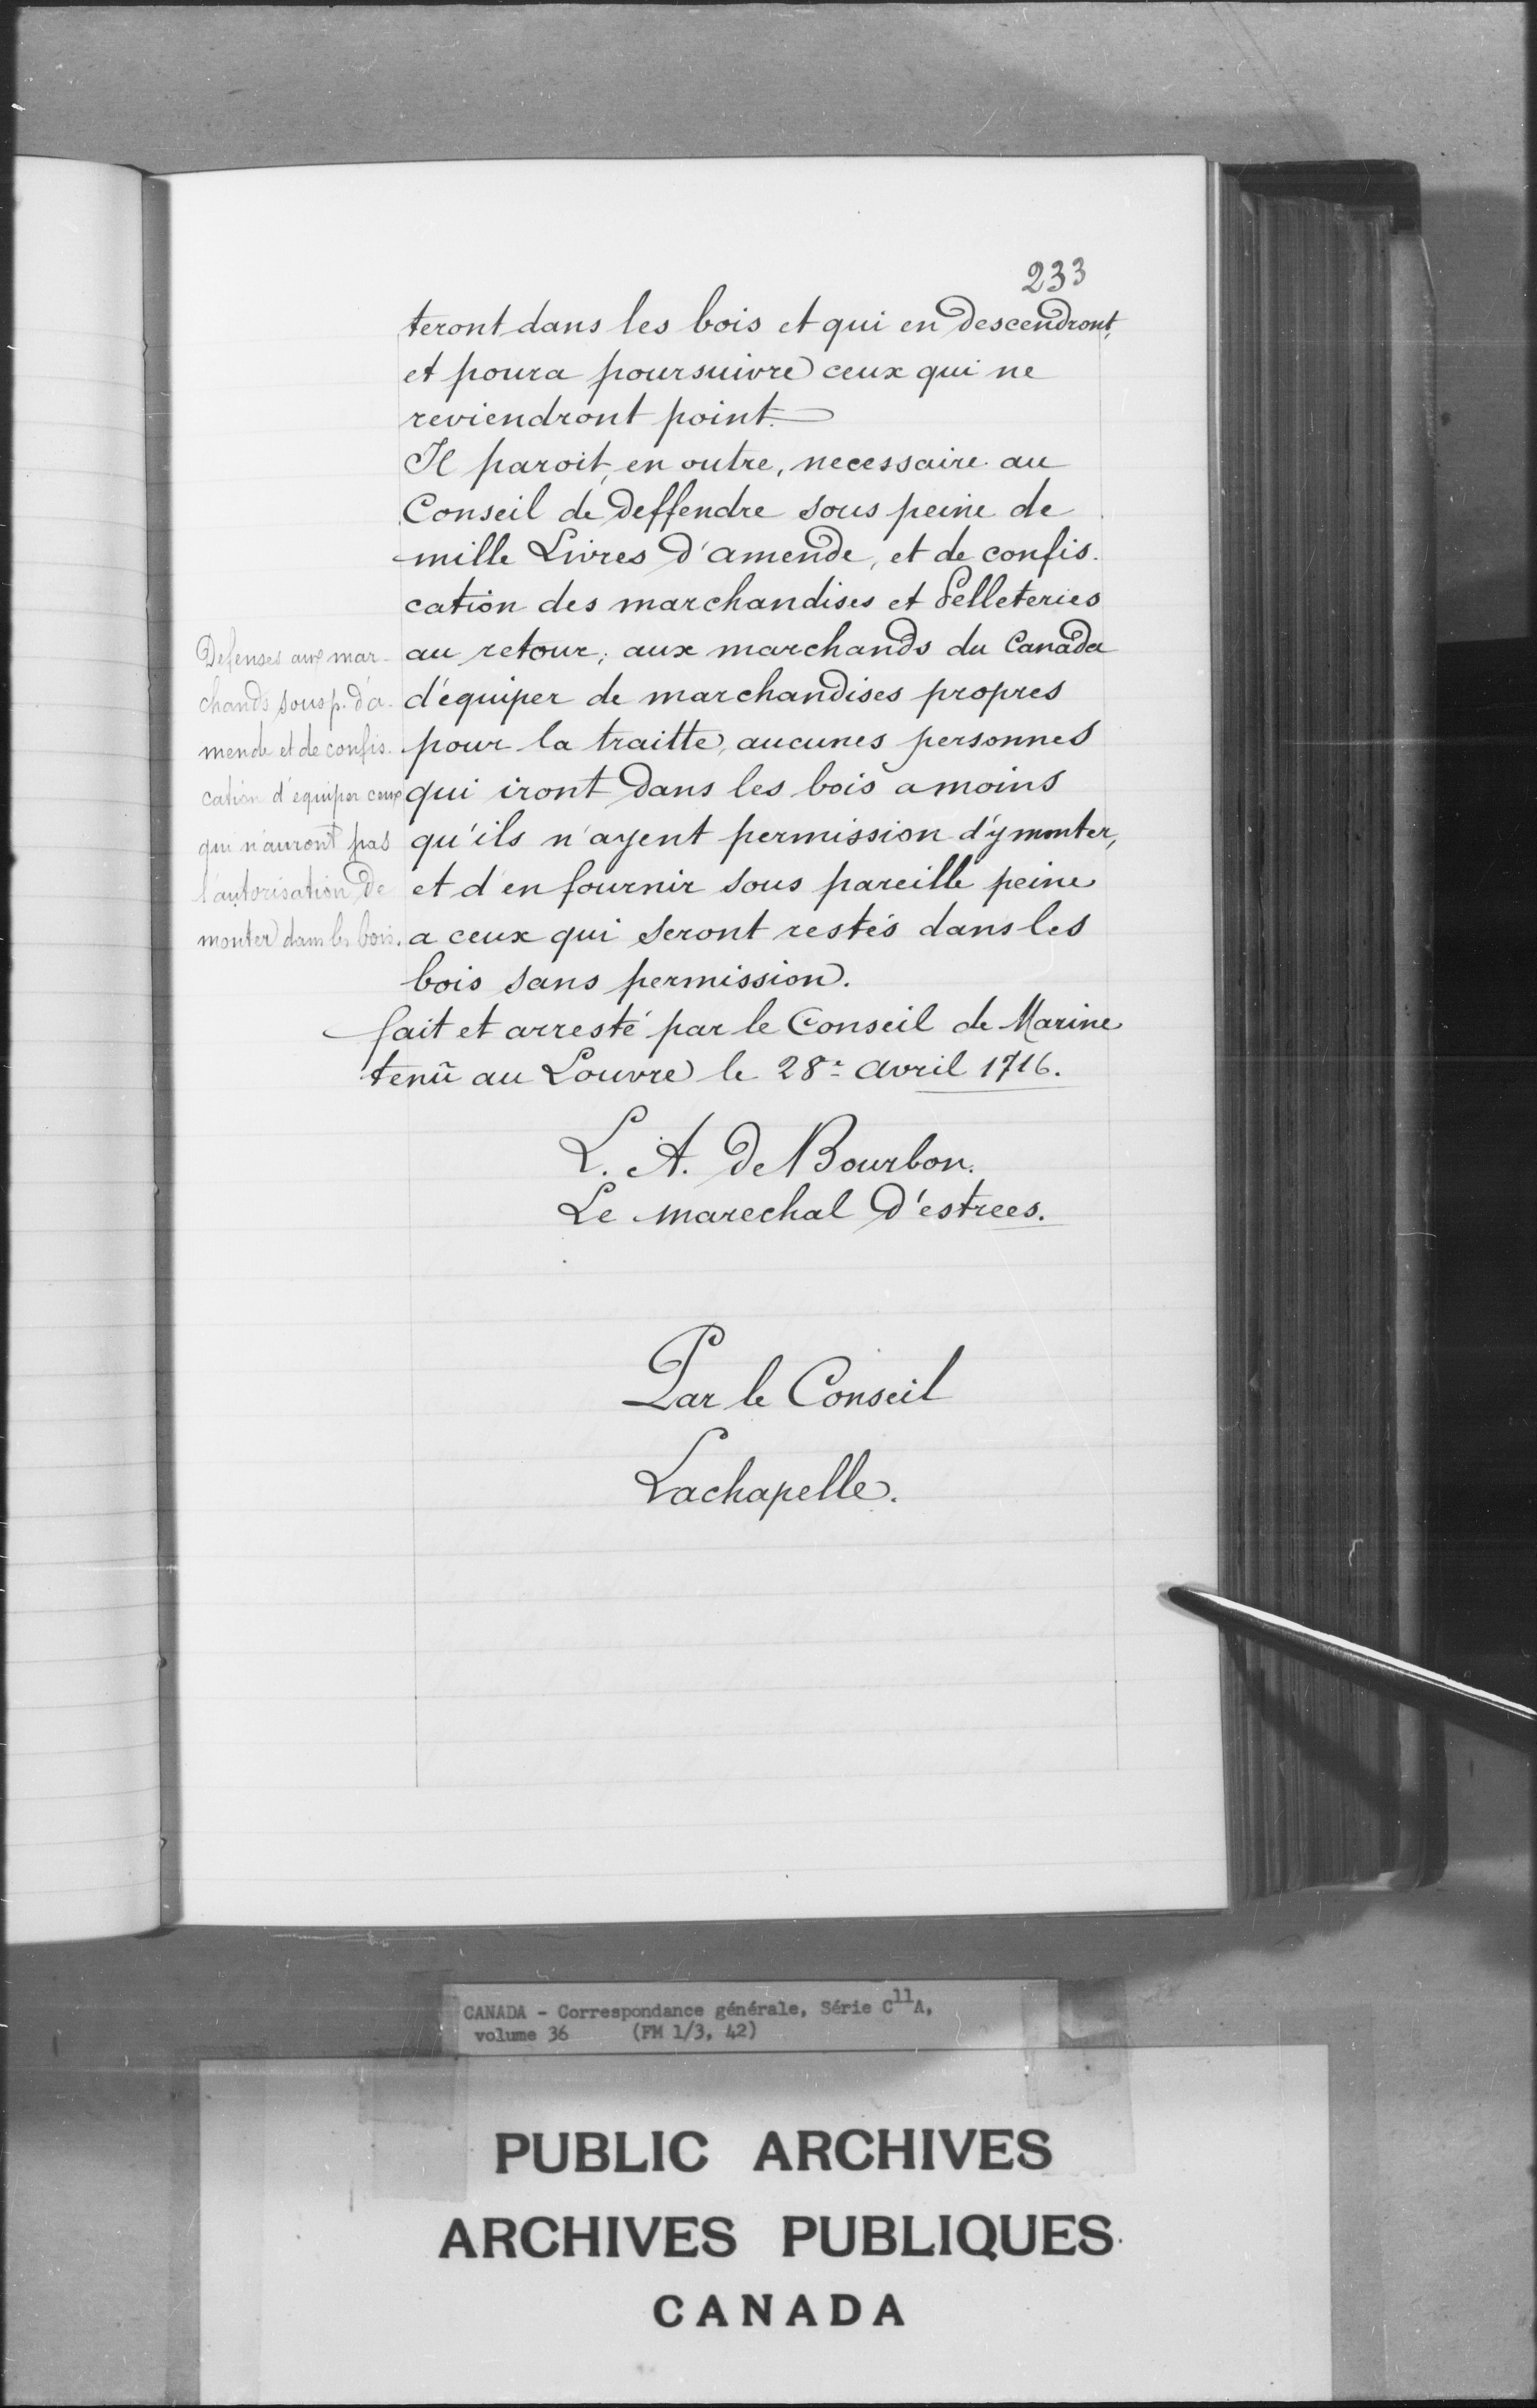 233
teront dans les bois et qui en descendront,
et poura poursuivre ceux qui ne
reviendront point.
Il paroit, en outre, necessaire au
Conseil de deffendre sous peine de
mille Livres d'amende, et de confis-
cation des marchandises et Pelleteries
au retour; aux marchands du Canada
d'équiper de marchandises propres
pour la traitte, aucunes personnes
qui iront dans les bois a moins
qu'ils n'ayent permission d'y monter,
et d'en fournir sous pareille peine
a ceux qui seront restés dans les
bois sans permission.
Defenses aux mar-
chands sous p. d'a-
mende et de confis-
cation d'equiper ceux
qui n'auront pas
l'autorisation de
monter dans les bois.
fait et arresté par le Conseil de Marine
tenû au Louvre le 28e avril 1716.
L. A. De Bourbon.
Le marechal D'estrees.
Par le Conseil
Lachapelle.
CANADA - Correspondance générale, Série C11A,
volume 36 (FM 1/3, 42)
PUBLIC ARCHIVES
ARCHIVES PUBLIQUES
CANADA